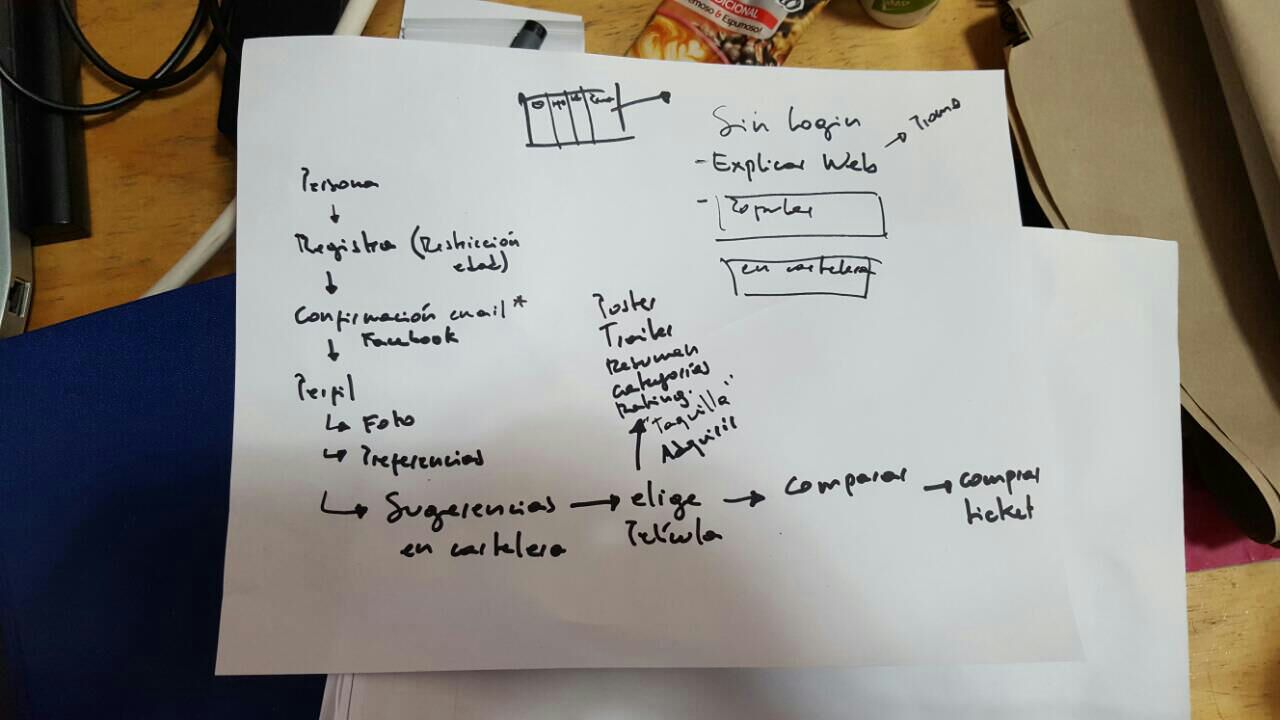 DICIONAL
Cremoso & Espumoso!
Sin Login
- Explicar Web
-
Popular
en cartelera
Persona
Registra (Restricción
edad)
Confirmación email *
Facebook
Perfil
Foto
Preferencias
Sugerencias
en cartelera
Poster
Trailer
Resumen
categorías
Rating.
"Taquilla"
Adquirir
elige
Película
comparar
comprar
ticket